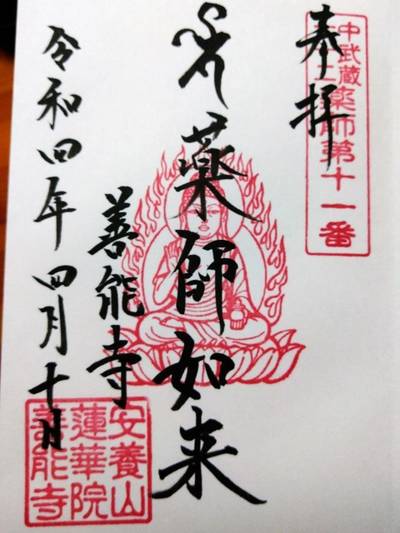 奉拝
中武蔵
十二薬師第十一番
薬師如来
善能寺
令和四年四月十日
安養山
蓮華院
善能寺